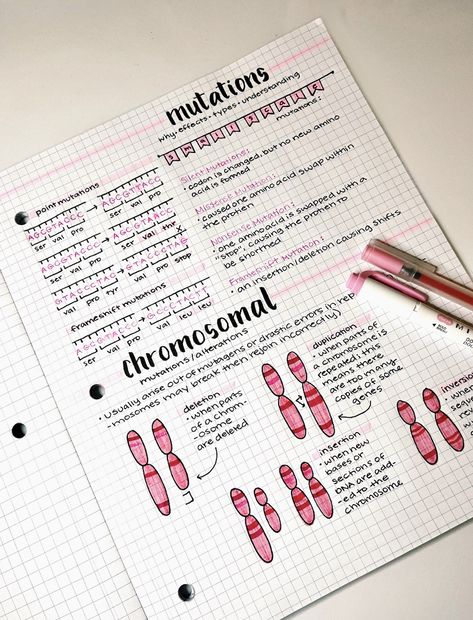 mutations
why • effects • types • understanding
SMALL SCALE
mutations:
Silent Mutations:
• codon is changed, but no new amino
acid is formed
Missense Mutation:
• caused one amino acid swap within
the protien
Nonsense Mutation:
• one amino acid is swapped with a
"stop", causing the protien to
be shortned
Frameshift Mutation:
• an insertion/deletion causing shifts
point mutations
AGCGTACCC
ser val pro
AGCGTTACCC
ser val pro
AGCGTACCC
ser val pro
ser val thr
GTACCCTAC
val pro tyr
GTACCCTAG
val pro stop
frameshift mutations
AGCGTACCC
ser val pro
ser leu leu
chromosomal
mutations/alterations
• usually arise out of mutagens or drastic errors in rep
mosomes may break then rejoin incorrectly)
deletion
• when parts
of a chrom-
osome
are deleted
duplication
• when parts of
a chromosome is
repeated; this
means there
are too many
copies of some
genes
insertion
• when new
bases or
sections of
DNA are add-
ed to the
chromosome
inversi
• when
sequ